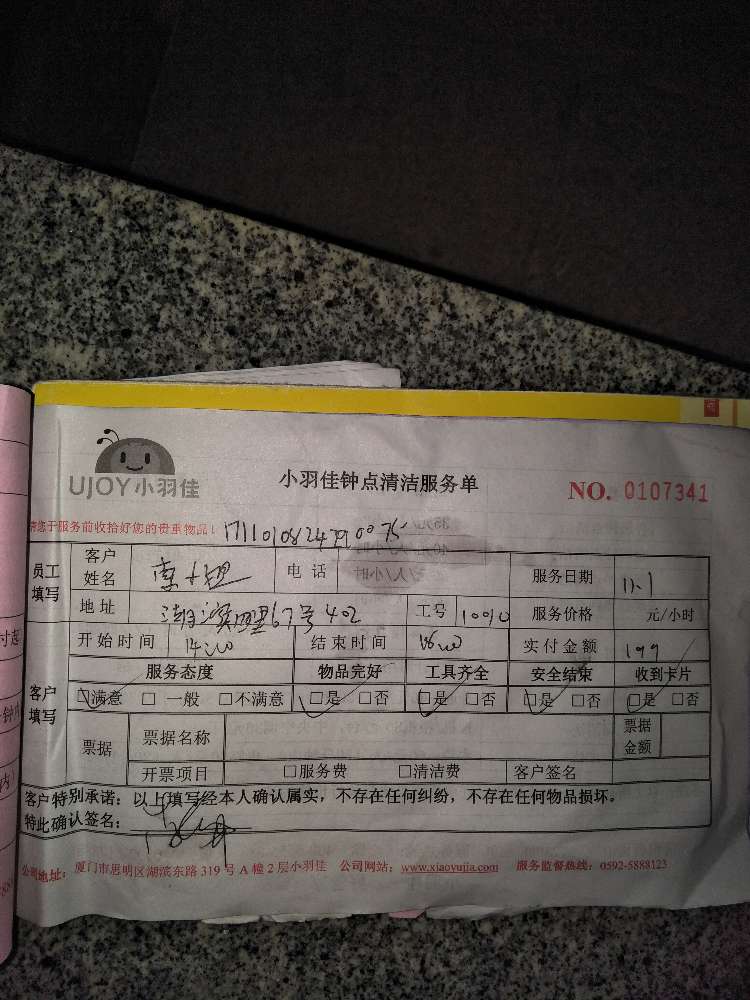 UJOY小羽佳
小羽佳钟点清洁服务单
NO. 0107341
请您于服务前收拾好您的贵重物品！
员工填写 客户姓名 电话 服务日期 11.1
地址 67号402 工号 服务价格 元/小时
开始时间 14:00 结束时间 实付金额 199
客户填写 服务态度 物品完好 工具齐全 安全结束 收到卡片
□满意 □一般 □不满意 □是 □否 □是 □否 □是 □否 □是 □否
票据 票据名称 票据金额
开票项目 □服务费 □清洁费 客户签名
客户特别承诺：以上填写经本人确认属实，不存在任何纠纷，不存在任何物品损坏。
特此确认签名：
公司地址：厦门市思明区湖滨东路319号A幢2层小羽佳 公司网站：www.xiaoyujia.com 服务监督热线：0592-5888123